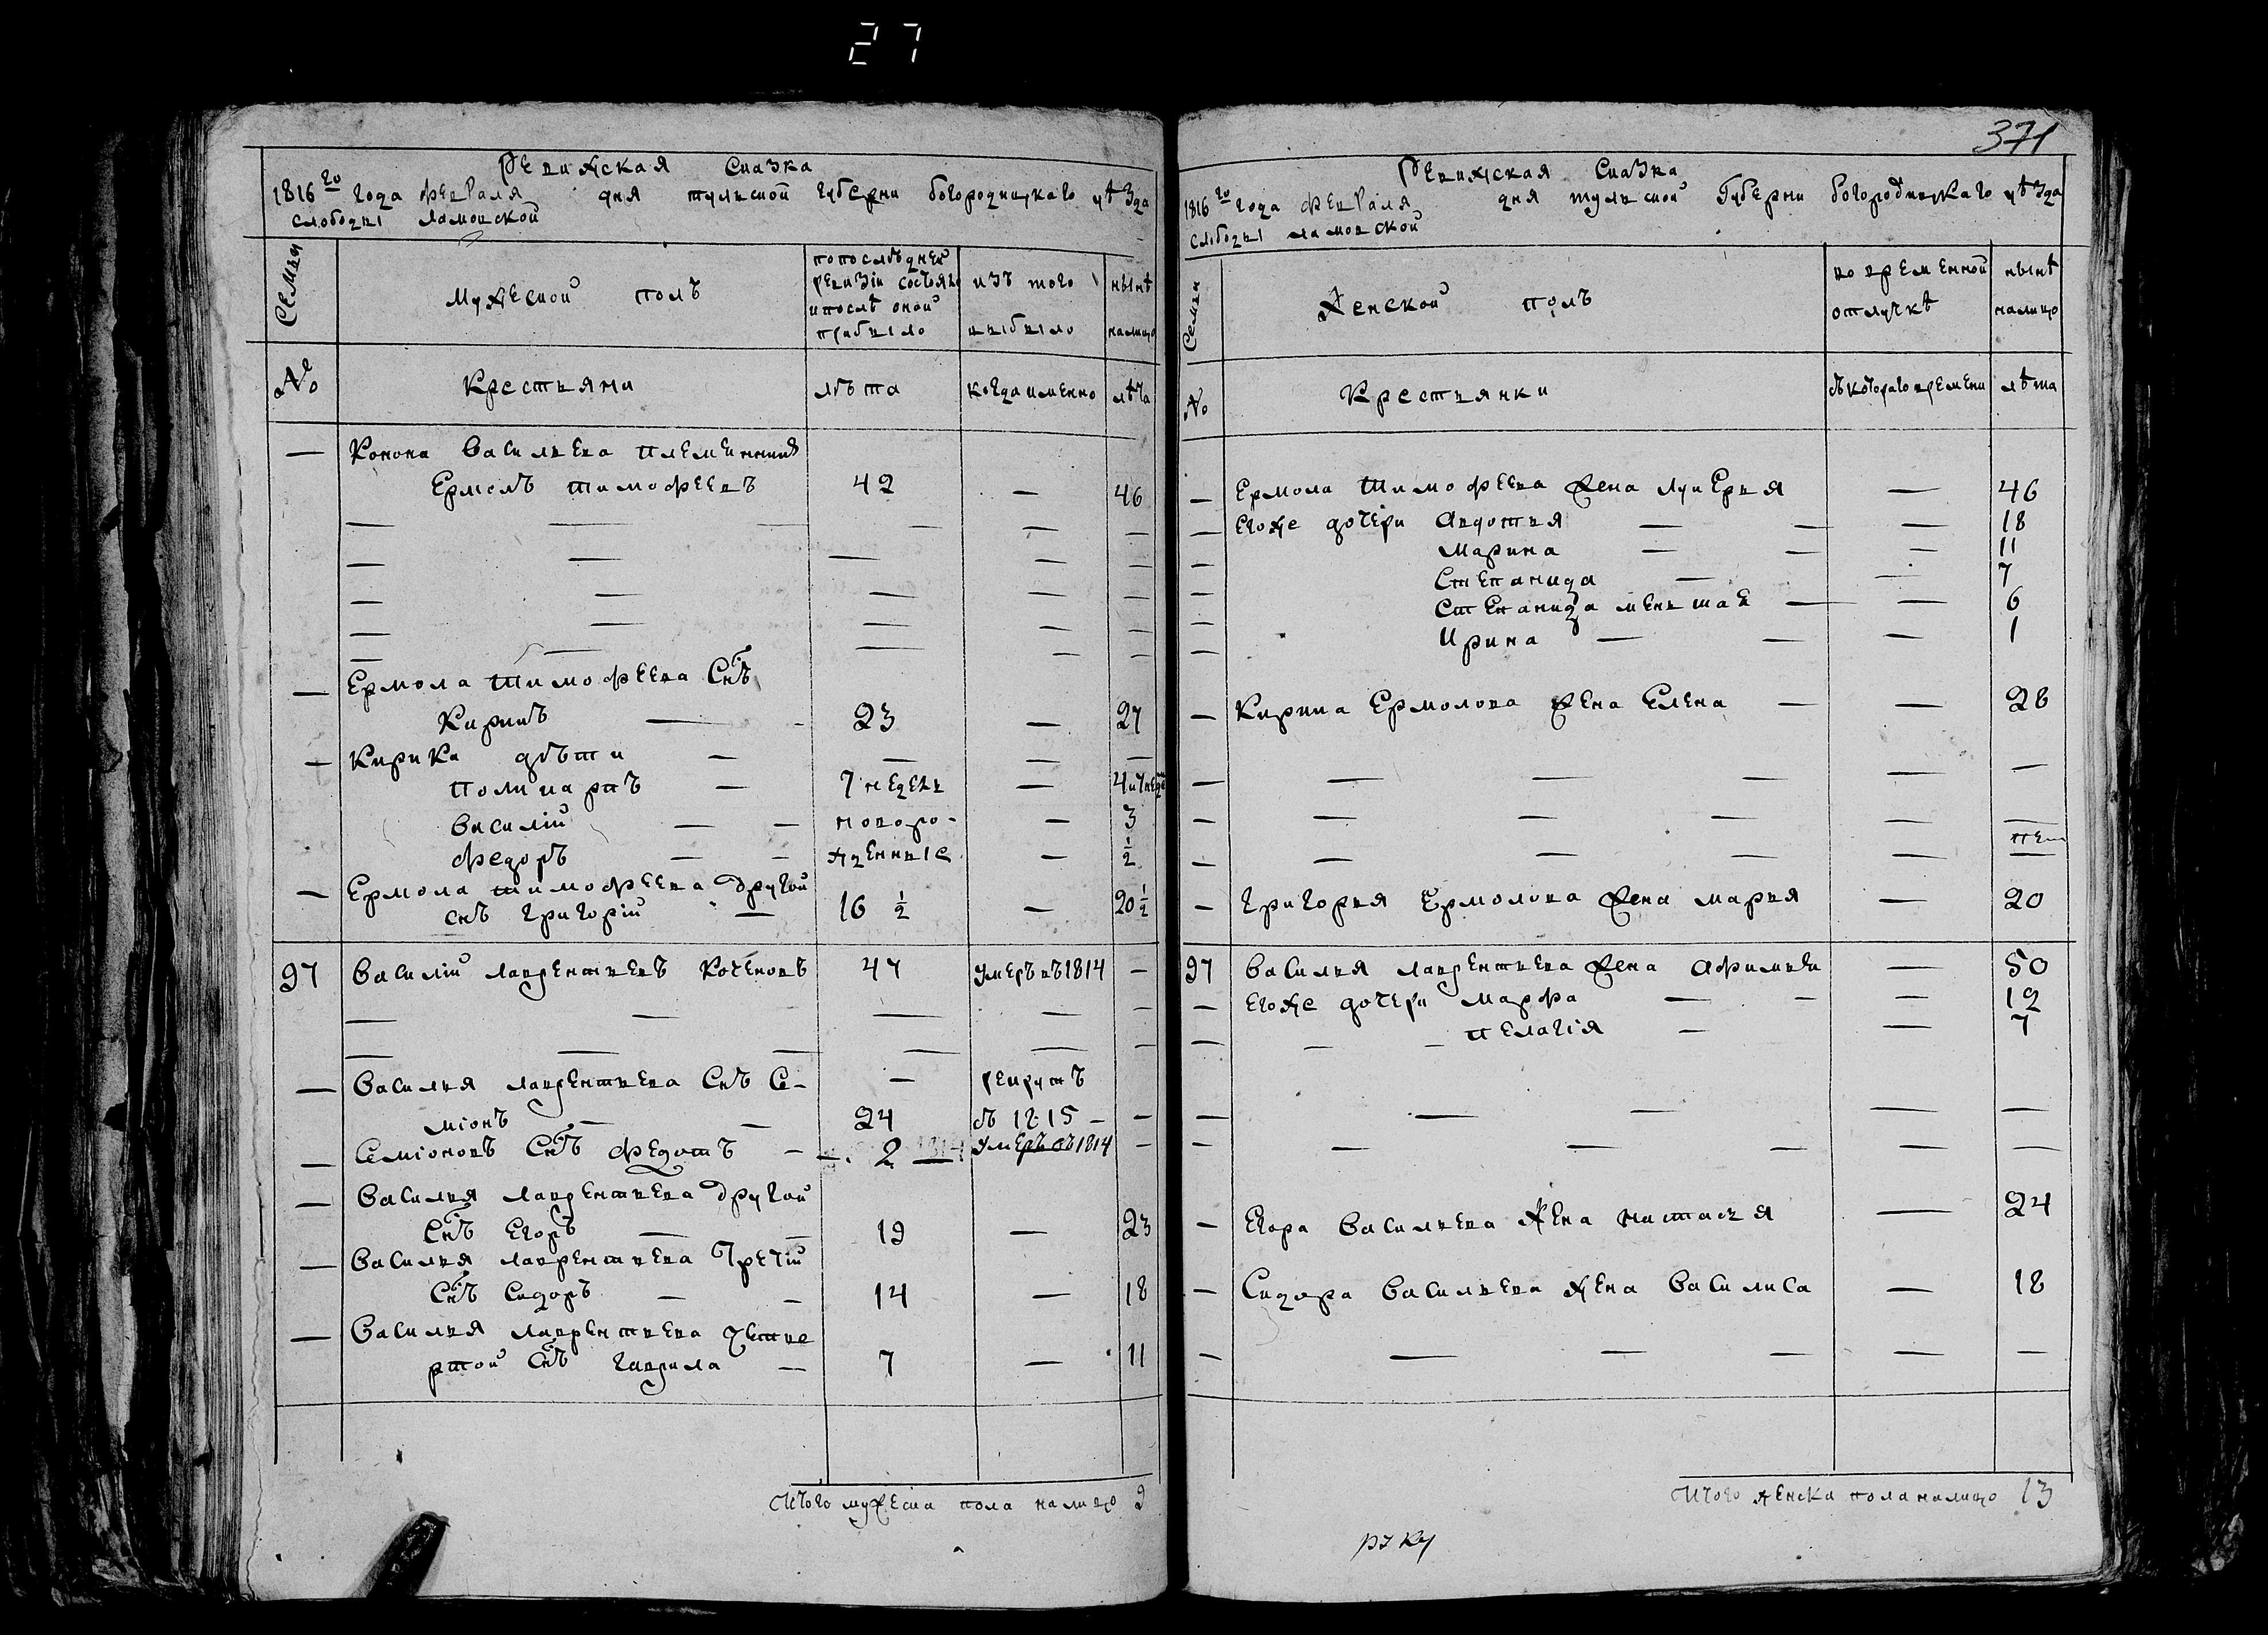 27
Ревижская Сказка
1816го года февраля дня тульской губерни богородицкаго уѣзда
слободы ламовской
Семьи
Мужеской полъ
попослѣдней ревизіи состояло
и послѣ оной прибыло
изъ того выбыло
нынѣ налицо
№
Крестьяни
лѣта
когда именно
лѣта
— Конона Васильева племянникъ
Ермолъ тимофеевъ 42 — 46
— Ермола тимофеева Снъ
Кирикъ — 23 — 27
— Кирика дѣти — — — —
поликарпъ — 7 недель — 4 и 7 неде
Василій — — новоро- — 3
федоръ — — жденные — ½
— Ермола тимофеева другой
снъ григорій — 16 ½ — 20 ½
97 Василій лаврентьевъ Коченовъ 47 умеръ въ 1814 —
— Василья лаврентьева Снъ Се- — рекрутъ
міонъ — — 24 въ 1815 — —
— Семіоновъ Снъ федотъ — 2 — умеръ въ 1814 —
— Василья лаврентьева другой
Снъ Егоръ — — 19 — 23
— Василья лаврентьева третій
Снъ Сидоръ — — 14 — 18
— Василья лаврентьева четве
ртой Снъ гаврила — 7 — 11
Итого мужеска пола налицо 9
371
Ревижская Сказка
1816го года февраля дня тульской Губерни богородицкаго уѣзда
слободы ламовской
Семьи
Женской полъ
во временной отлучкѣ
нынѣ налицо
№
Крестьянки
съ котораго времени
лѣта
— Ермола тимофеева жена лукерья — 46
— Егоже дочери Авдотья — — — 18
— Марина — — — 11
— Степанида — — 7
— Степанида меньшая — — 6
— Ирина — — — 1
— Кирика Ермолова жена Елена — — 28
— григорья Ермолова жена марья — 20
97 Василья лаврентьева жена Афимья — 50
— Егоже дочери марфа — — — 12
— пелагія — — 7
— Егора Васильева жена настасья — 24
— Сидора Васильева жена Василиса — 18
Итого женска пола налицо 13